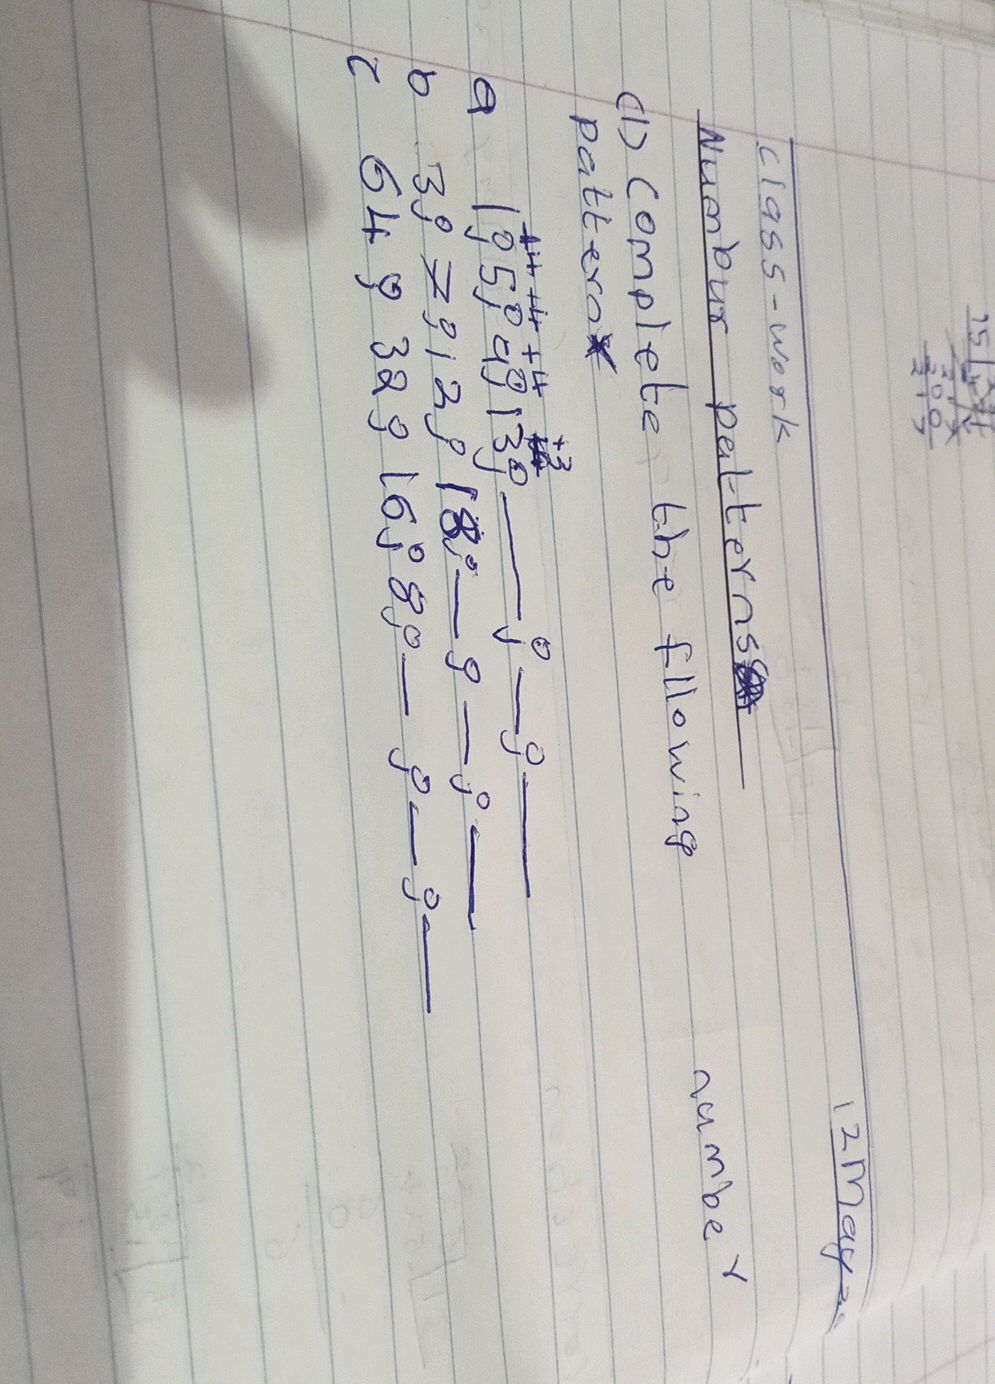 12 May
class-work
Number patterns
(1) Complete the fllowing number
pattern
+4 +4 +4 +3
a 1; 5; 9; 13; ___ ; ___ ; ___
b 3; 7; 12; 18; ___ ; ___ ; ___
c 64; 32; 16; 8; ___ ; ___ ; ___